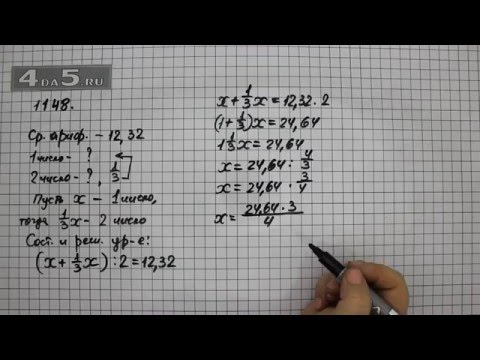 4DA5.RU
1148.
Ср. ариф. – 12,32
1 число – ?
2 число – ?, 1/3
Пусть x – 1 число,
тогда 1/3x – 2 число
Сост. и реш. ур-е:
(x + 1/3x) : 2 = 12,32
x + 1/3x = 12,32 · 2
(1 + 1/3)x = 24,64
1 1/3x = 24,64
x = 24,64 : 4/3
x = 24,64 · 3/4
x = 24,64 · 3 / 4